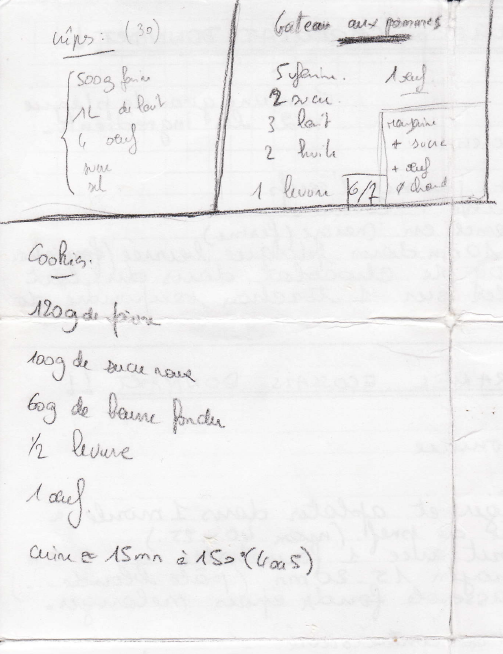 crêpes: (30)
500g farine
1L de lait
4 œuf
sucre
sel
Gateau aux pommes
5 farine. 1 œuf
2 sucre
3 lait
2 huile
1 levure 6/7
margarine
+ sucre
+ œuf
chaud
Cookies.
120g de farine
100g de sucre roux
60g de beurre fondu
1/2 levure
1 œuf
cuire ≈ 15mn à 150° (4 ou 5)